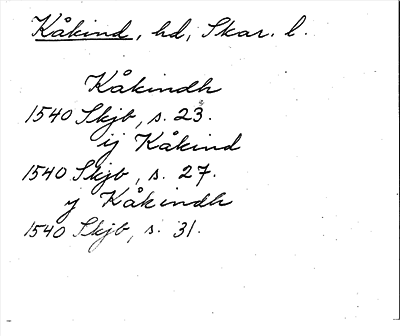 Kåkind, hd, Skar. l.
Kåkindh
1540 Skjb, s. 23.
ij Kåkind
1540 Skjb, s. 27.
j Kåkindh
1540 Skjb, s. 31.